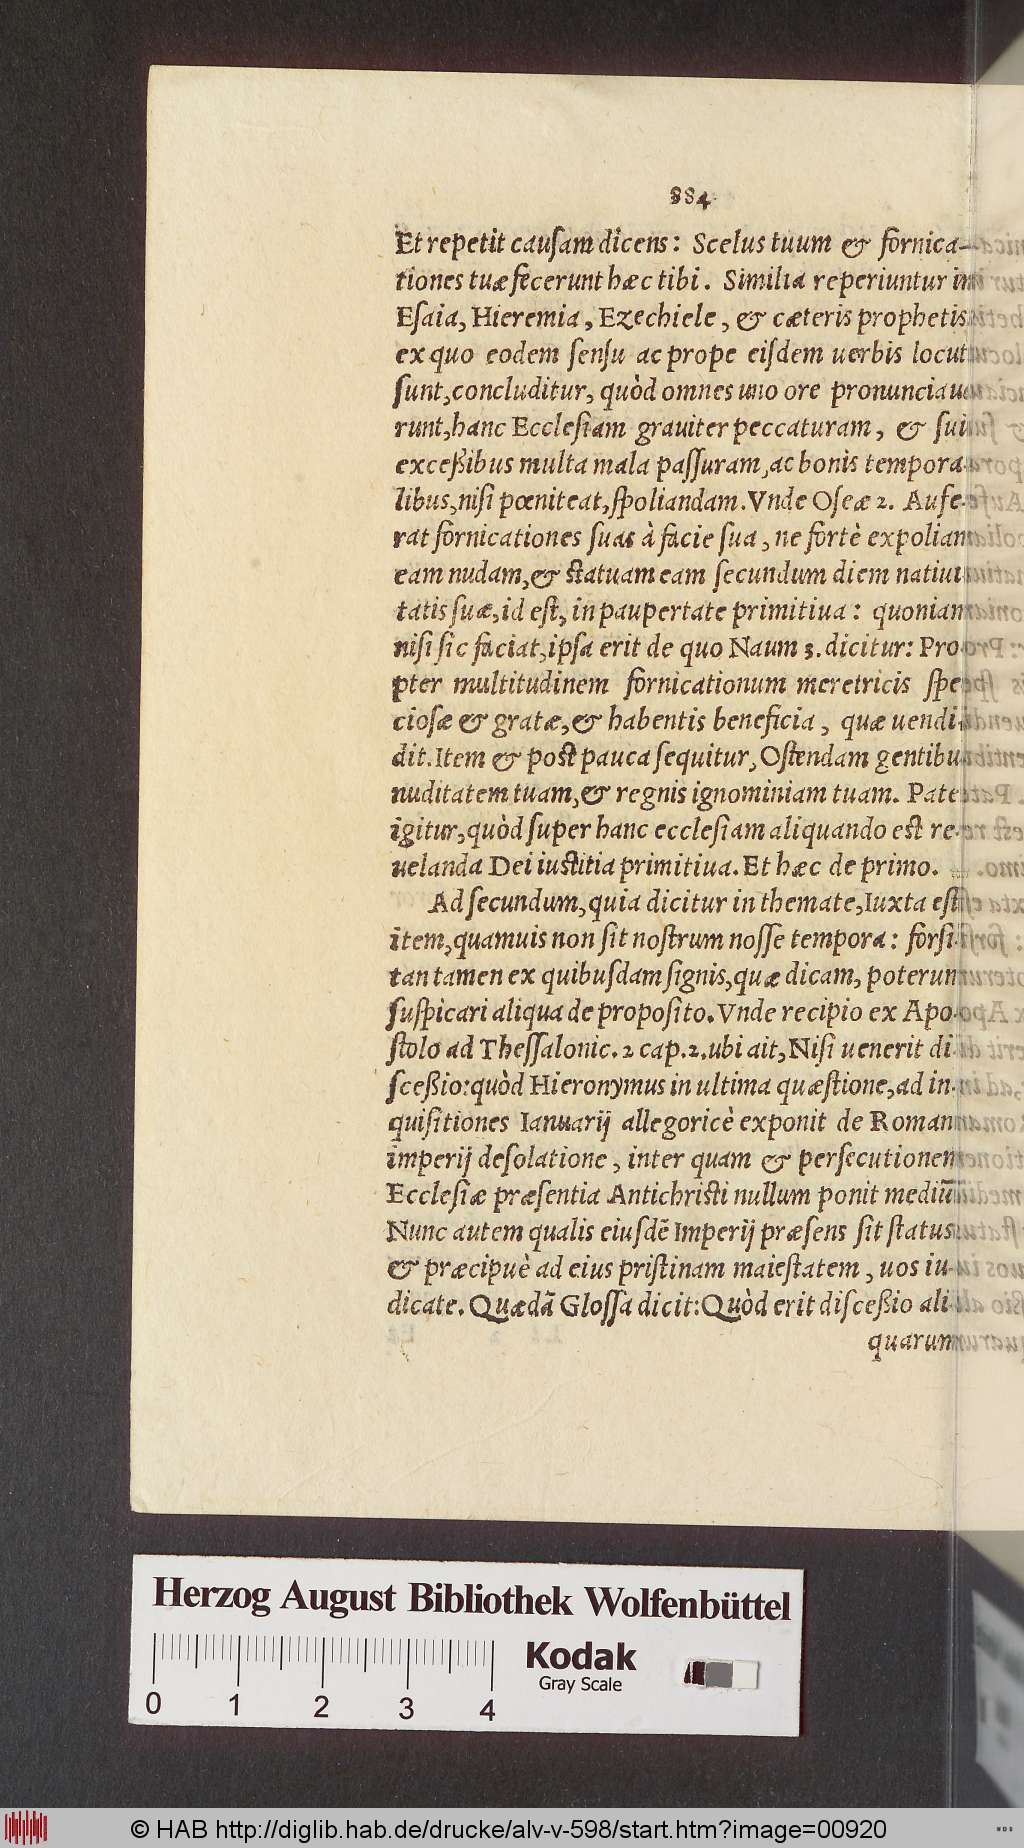 884
Et repetit cauſam dicens: Scelus tuum & fornica-
tiones tuæ fecerunt hæc tibi. Similia reperiuntur in
Eſaia, Hieremia, Ezechiele, & cæteris prophetis
ex quo eodem ſenſu ac prope eiſdem uerbis locut
ſunt, concluditur, quòd omnes uno ore pronunciaue
runt, hanc Eccleſiam grauiter peccaturam, & ſui
exceßibus multa mala paſſuram, ac bonis tempora-
libus, niſi pœniteat, ſpoliandam. Vnde Oſeæ 2. Aufe-
rat fornicationes ſuas à facie ſua, ne fortè expoliam
eam nudam, & ſtatuam eam ſecundum diem natiui
tatis ſuæ, id eſt, in paupertate primitiua: quoniam
niſi ſic faciat, ipſa erit de quo Naum 3. dicitur: Pro-
pter multitudinem fornicationum meretricis ſpe
cioſæ & gratæ, & habentis beneficia, quæ uendi-
dit. Item & poſt pauca ſequitur, Oſtendam gentibu
nuditatem tuam, & regnis ignominiam tuam. Pate
igitur, quòd ſuper hanc eccleſiam aliquando eſt re-
uelanda Dei iuſtitia primitiua. Et hæc de primo.
Ad ſecundum, quia dicitur in themate, Iuxta eſt
item, quamuis non ſit noſtrum noſſe tempora: forſi-
tan tamen ex quibuſdam ſignis, quæ dicam, poterunt
ſuſpicari aliqua de propoſito. Vnde recipio ex Apo-
ſtolo ad Theſſalonic. 2 cap. 2. ubi ait, Niſi uenerit di
ſceßio: quòd Hieronymus in ultima quæſtione, ad in-
quiſitiones Ianuarij allegoricè exponit de Roman
imperij deſolatione, inter quam & perſecutionem
Eccleſiæ præſentia Antichriſti nullum ponit mediũ
Nunc autem qualis eiuſdẽ Imperij præſens ſit ſtatus
& præcipuè ad eius priſtinam maieſtatem, uos iu-
dicate. Quædã Gloſſa dicit: Quòd erit diſceßio ali
quarum
Herzog August Bibliothek Wolfenbüttel
Kodak
Gray Scale
0 1 2 3 4
© HAB http://diglib.hab.de/drucke/alv-v-598/start.htm?image=00920